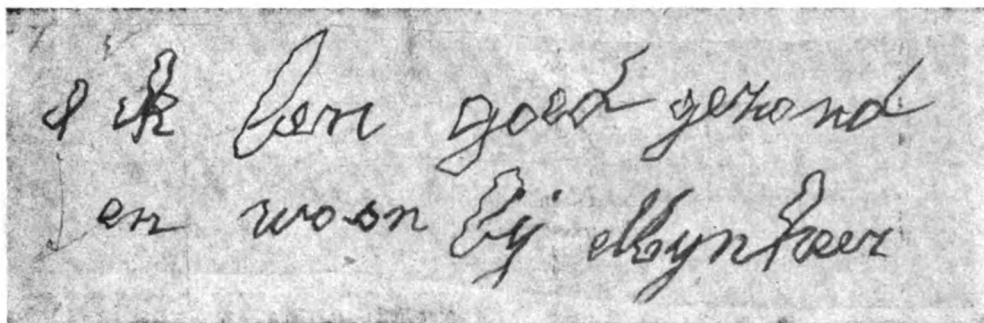 Ik ben goed gezond
en woon bij Mynheer